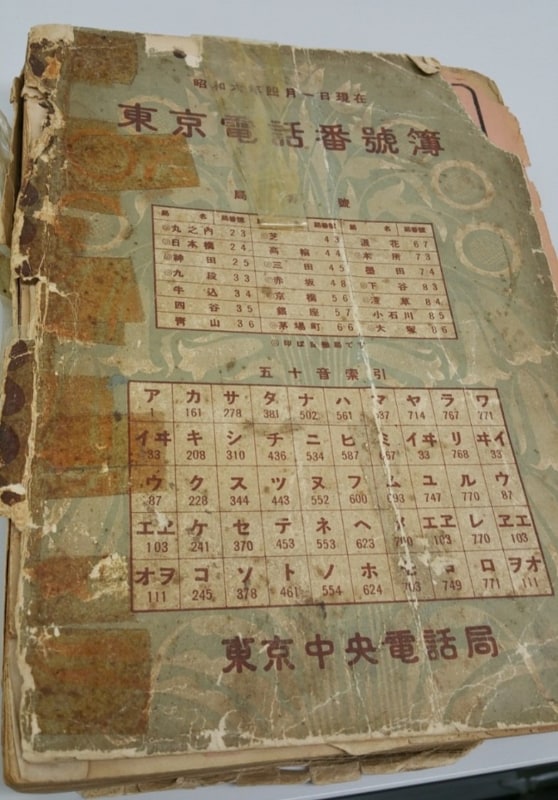 昭和六年四月一日現在
東京電話番號簿
局 號
局 名 局番號 局番號 局 名 局番號
◎丸之內 23 ◎芝 43 浪花 67
◎日本橋 24 高輪 44 ◎本所 73
◎神田 25 ◎三田 45 墨田 74
◎九段 33 ◎赤坂 48 ◎下谷 83
牛込 34 京橋 56 ◎淺草 84
四谷 35 銀座 57 小石川 85
靑山 36 ◎茅場町 66 ◎大塚 86
五十音索引
ア カ サ タ ナ ハ マ ヤ ラ ワ
1 161 278 381 502 561 637 714 767 771
イヰ キ シ チ ニ ヒ ミ イヰ リ ヰイ
33 208 310 436 534 587 667 33 768 33
ウ ク ス ツ ヌ フ ム ユ ル ウ
87 228 344 443 552 600 693 747 770 87
エヱ ケ セ テ ネ ヘ メ エヱ レ ヱエ
103 241 370 453 553 623 700 103 770 103
オヲ コ ソ ト ノ ホ モ ヨ ロ ヲオ
111 245 378 461 554 624 703 749 771 111
東京中央電話局